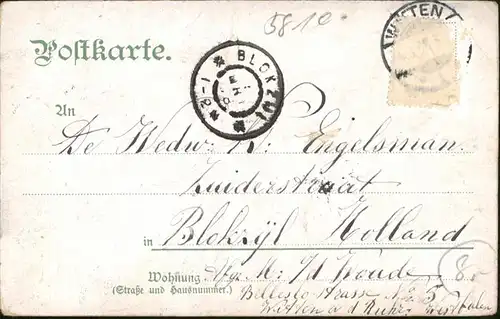 5810
WITTEN
Postkarte.
BLOKZIJL
An
De Wedw: W. Engelsman.
Zuiderstraat
in Blokzyl Holland
Wohnung
(Straße und Hausnummer.)
Belle
Strasse No 5
Witten a d Ruhr Westfalen
8.-